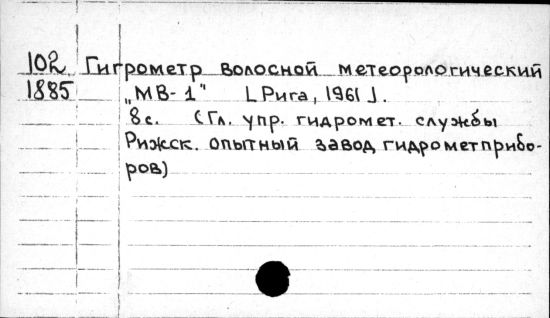 102 Гигрометр волосной метеорологический
1885 „МВ-1" [Рига, 1961].
8с. (Гл. упр. гидромет. службы
Рижск. опытный завод гидрометприбо-
ров)